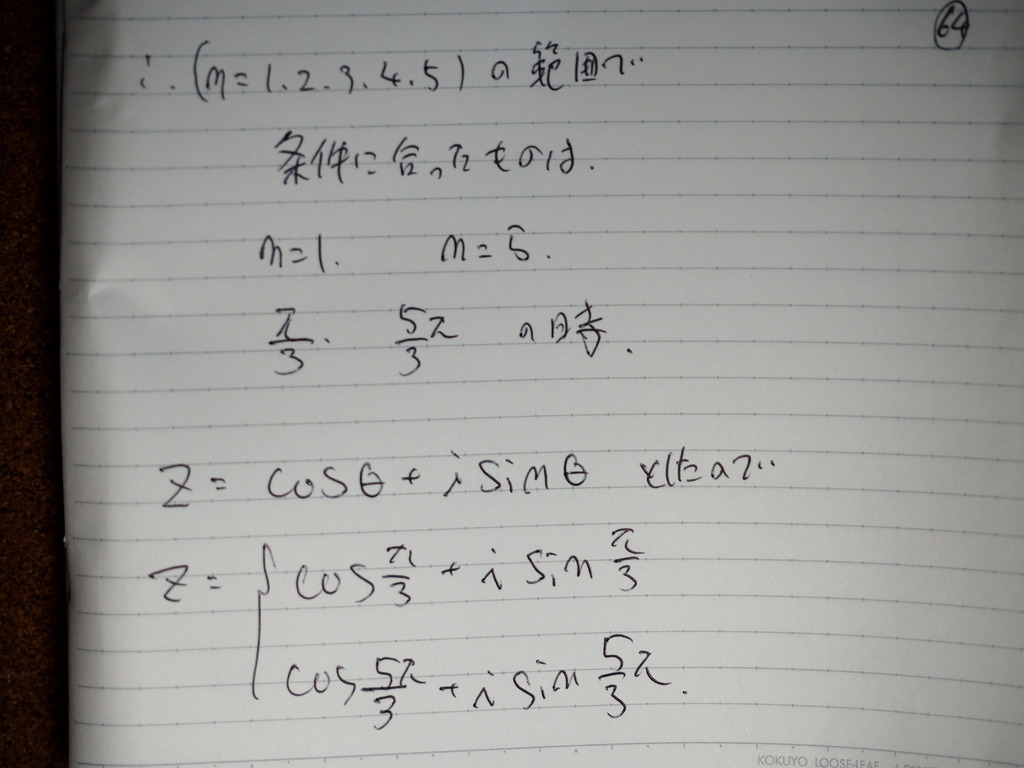 64
∴ (n=1.2.3.4.5) の範囲で
条件に合ったものは.
n=1. n=5.
π/3. 5/3π の時.
z = cosθ + i sinθ としたので
z = { cos π/3 + i sin π/3
cos 5π/3 + i sin 5/3π.
KOKUYO LOOSE-LEAF